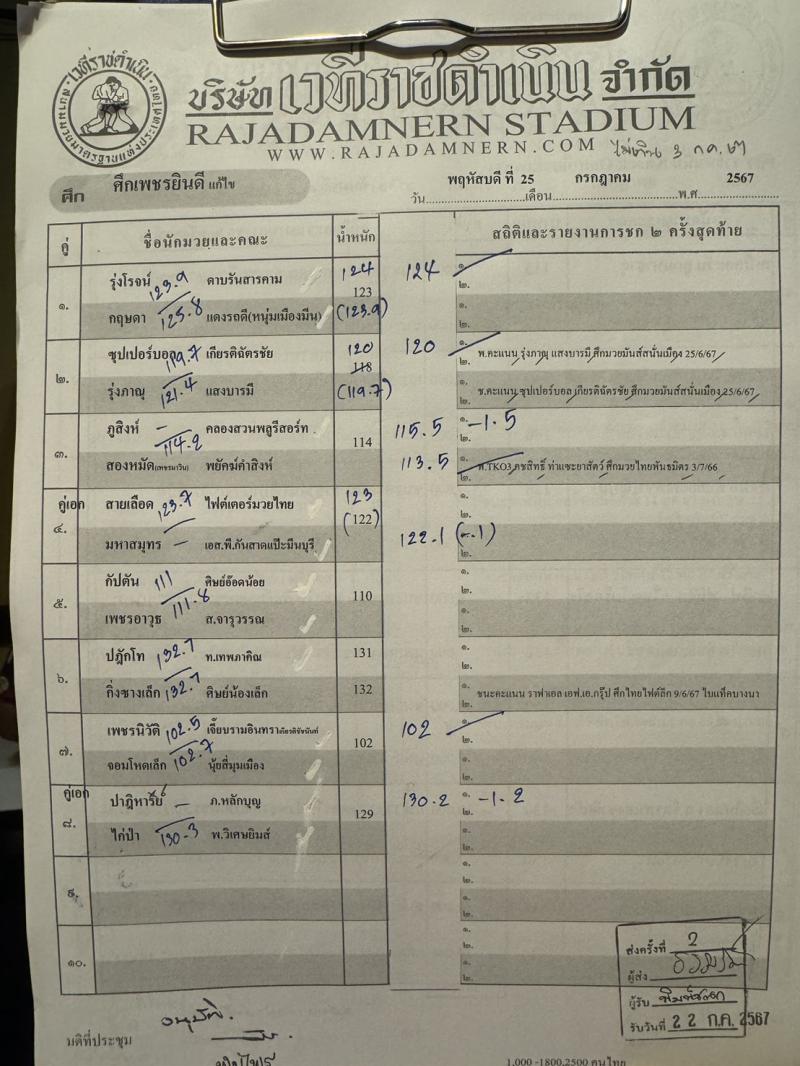 เวทีราชดำเนิน
สนามมวยมาตรฐานแห่งประเทศไทย
บริษัท เวทีราชดำเนิน จำกัด
RAJADAMNERN STADIUM
WWW.RAJADAMNERN.COM
ศึก ศึกเพชรยินดี แก้ไข
วัน พฤหัสบดี ที่ 25 เดือน กรกฎาคม พ.ศ. 2567
คู่ ชื่อนักมวยและคณะ น้ำหนัก สถิติและรายงานการชก ๒ ครั้งสุดท้าย
๑. รุ่งโรจน์ 123.9 ดาบรันสารคาม 124 124 ๑.
123 ๒.
กฤษดา 125.8 แดงรถดี(หนุ่มเมืองมีน) (123.9) ๑.
๒.
๒. ซุปเปอร์บอล 119.7 เกียรติฉัตรชัย 120 120 ๑.
118 ๒. พ.คะแนน รุ่งภาณุ แสงบารมี ศึกมวยมันส์สนั่นเมือง 25/6/67
รุ่งภาณุ 121.4 แสงบารมี (119.7) ๑.
๒. ช.คะแนน ซุปเปอร์บอล เกียรติฉัตรชัย ศึกมวยมันส์สนั่นเมือง 25/6/67
๓. ภูสิงห์ - คลองสวนพลูรีสอร์ท 114 115.5 ๑. -1.5
114.2 ๒.
สองหมัด(เพชรนาวิน) พยัคฆ์คำสิงห์ 113.5 ๑.
๒. พ.TKO3 คชสิทธิ์ ท่าแซะยาสัตว์ ศึกมวยไทยพันธมิตร 3/7/66
คู่เอก ๔. สายเลือด 123.7 ไฟต์เตอร์มวยไทย 123 ๑.
(122) ๒.
มหาสมุทร - เอส.พี.กันสาดแป๊ะมีนบุรี 122.1 (-.1) ๑.
๒.
๕. กัปตัน 111 ศิษย์อ๊อดน้อย 110 ๑.
๒.
เพชรอาวุธ 111.8 ส.จารุวรรณ ๑.
๒.
๖. ปฎักโท 132.7 ท.เทพภาคิณ 131 ๑.
๒.
กิ่งซางเล็ก 132.7 ศิษย์น้องเล็ก 132 ๑. ชนะคะแนน ราฟาเอล เอฟ.เอ.กรุ๊ป ศึกไทยไฟต์ลีก 9/6/67 ไบแท็คบางนา
๒.
๗. เพชรนิวัติ 102.5 เจี๊ยบรามอินทรา 102 102 ๑.
๒.
จอมโหดเล็ก 102.7 นุ้ยสี่มุมเมือง ๑.
๒.
คู่เอก ๘. ปาฎิหารีย์ - ภ.หลักบุญ 129 130.2 ๑. -1.2
๒.
ไก่ป่า 130.3 พ.วิเศษยิมส์ ๑.
๒.
๙. ๑.
๒.
๑.
๒.
๑๐. ๑.
๒.
๑.
๒.
ส่งครั้งที่ 2
ผู้ส่ง
ผู้รับ
รับวันที่ 22 ก.ค. 2567
มติที่ประชุม อนุมัติ.
1,000 -1800,2500 คนไทย